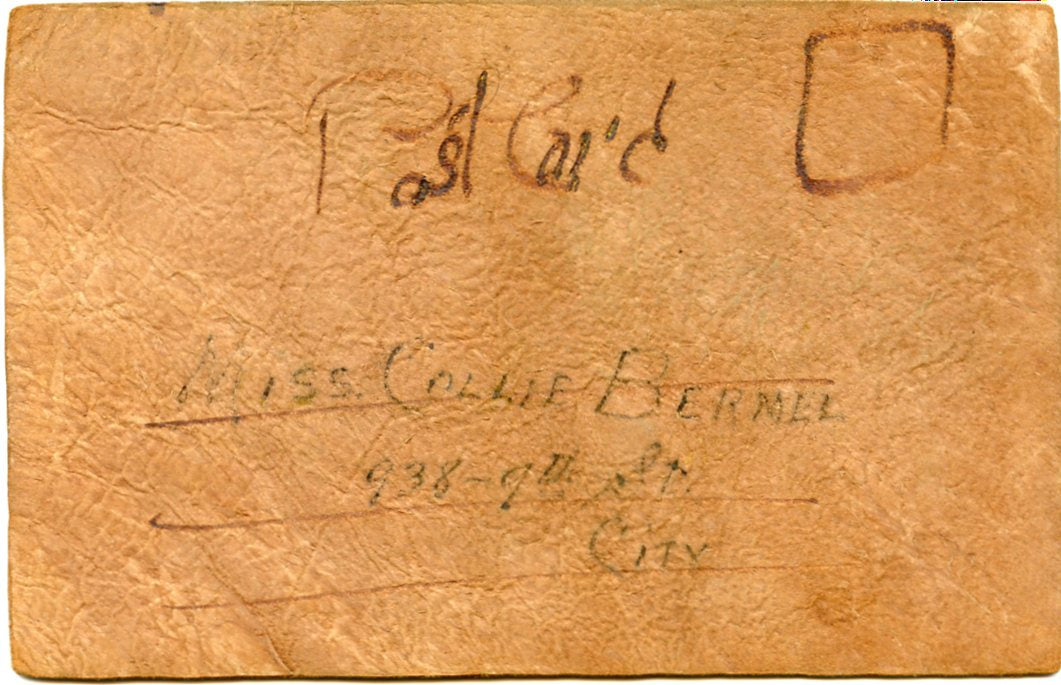 Post Card
MISS. CALLIE BERMEL
938-9th St.
CITY